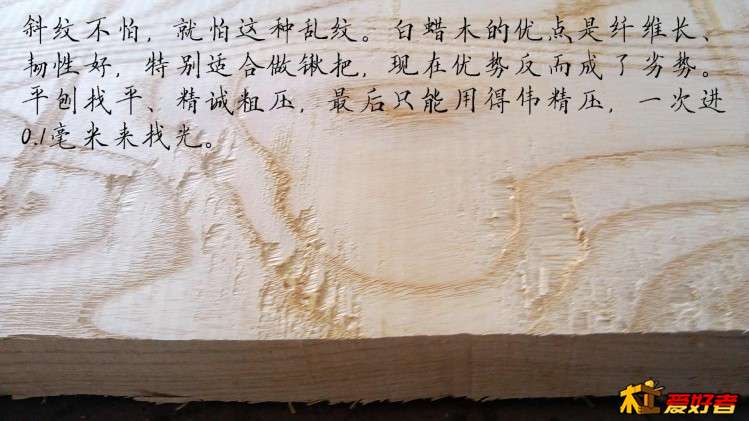 斜纹不怕，就怕这种乱纹。白蜡木的优点是纤维长、
韧性好，特别适合做锹把，现在优势反而成了劣势。
平刨找平、精诚粗压，最后只能用得伟精压，一次进
0.1毫米来找光。
木工爱好者